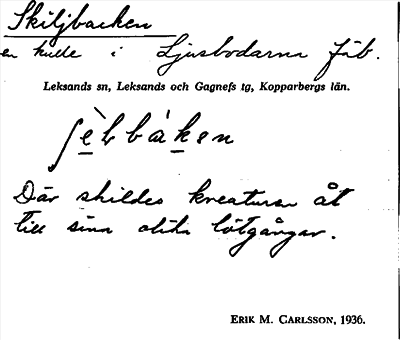 Skiljbacken
en kulle i Ljusbodarna fäb.
Leksands sn, Leksands och Gagnefs tg, Kopparbergs län.
ʃè̱lbàḵen
Där skildes kreaturen åt
till sina olika lötgångar.
ERIK M. CARLSSON, 1936.